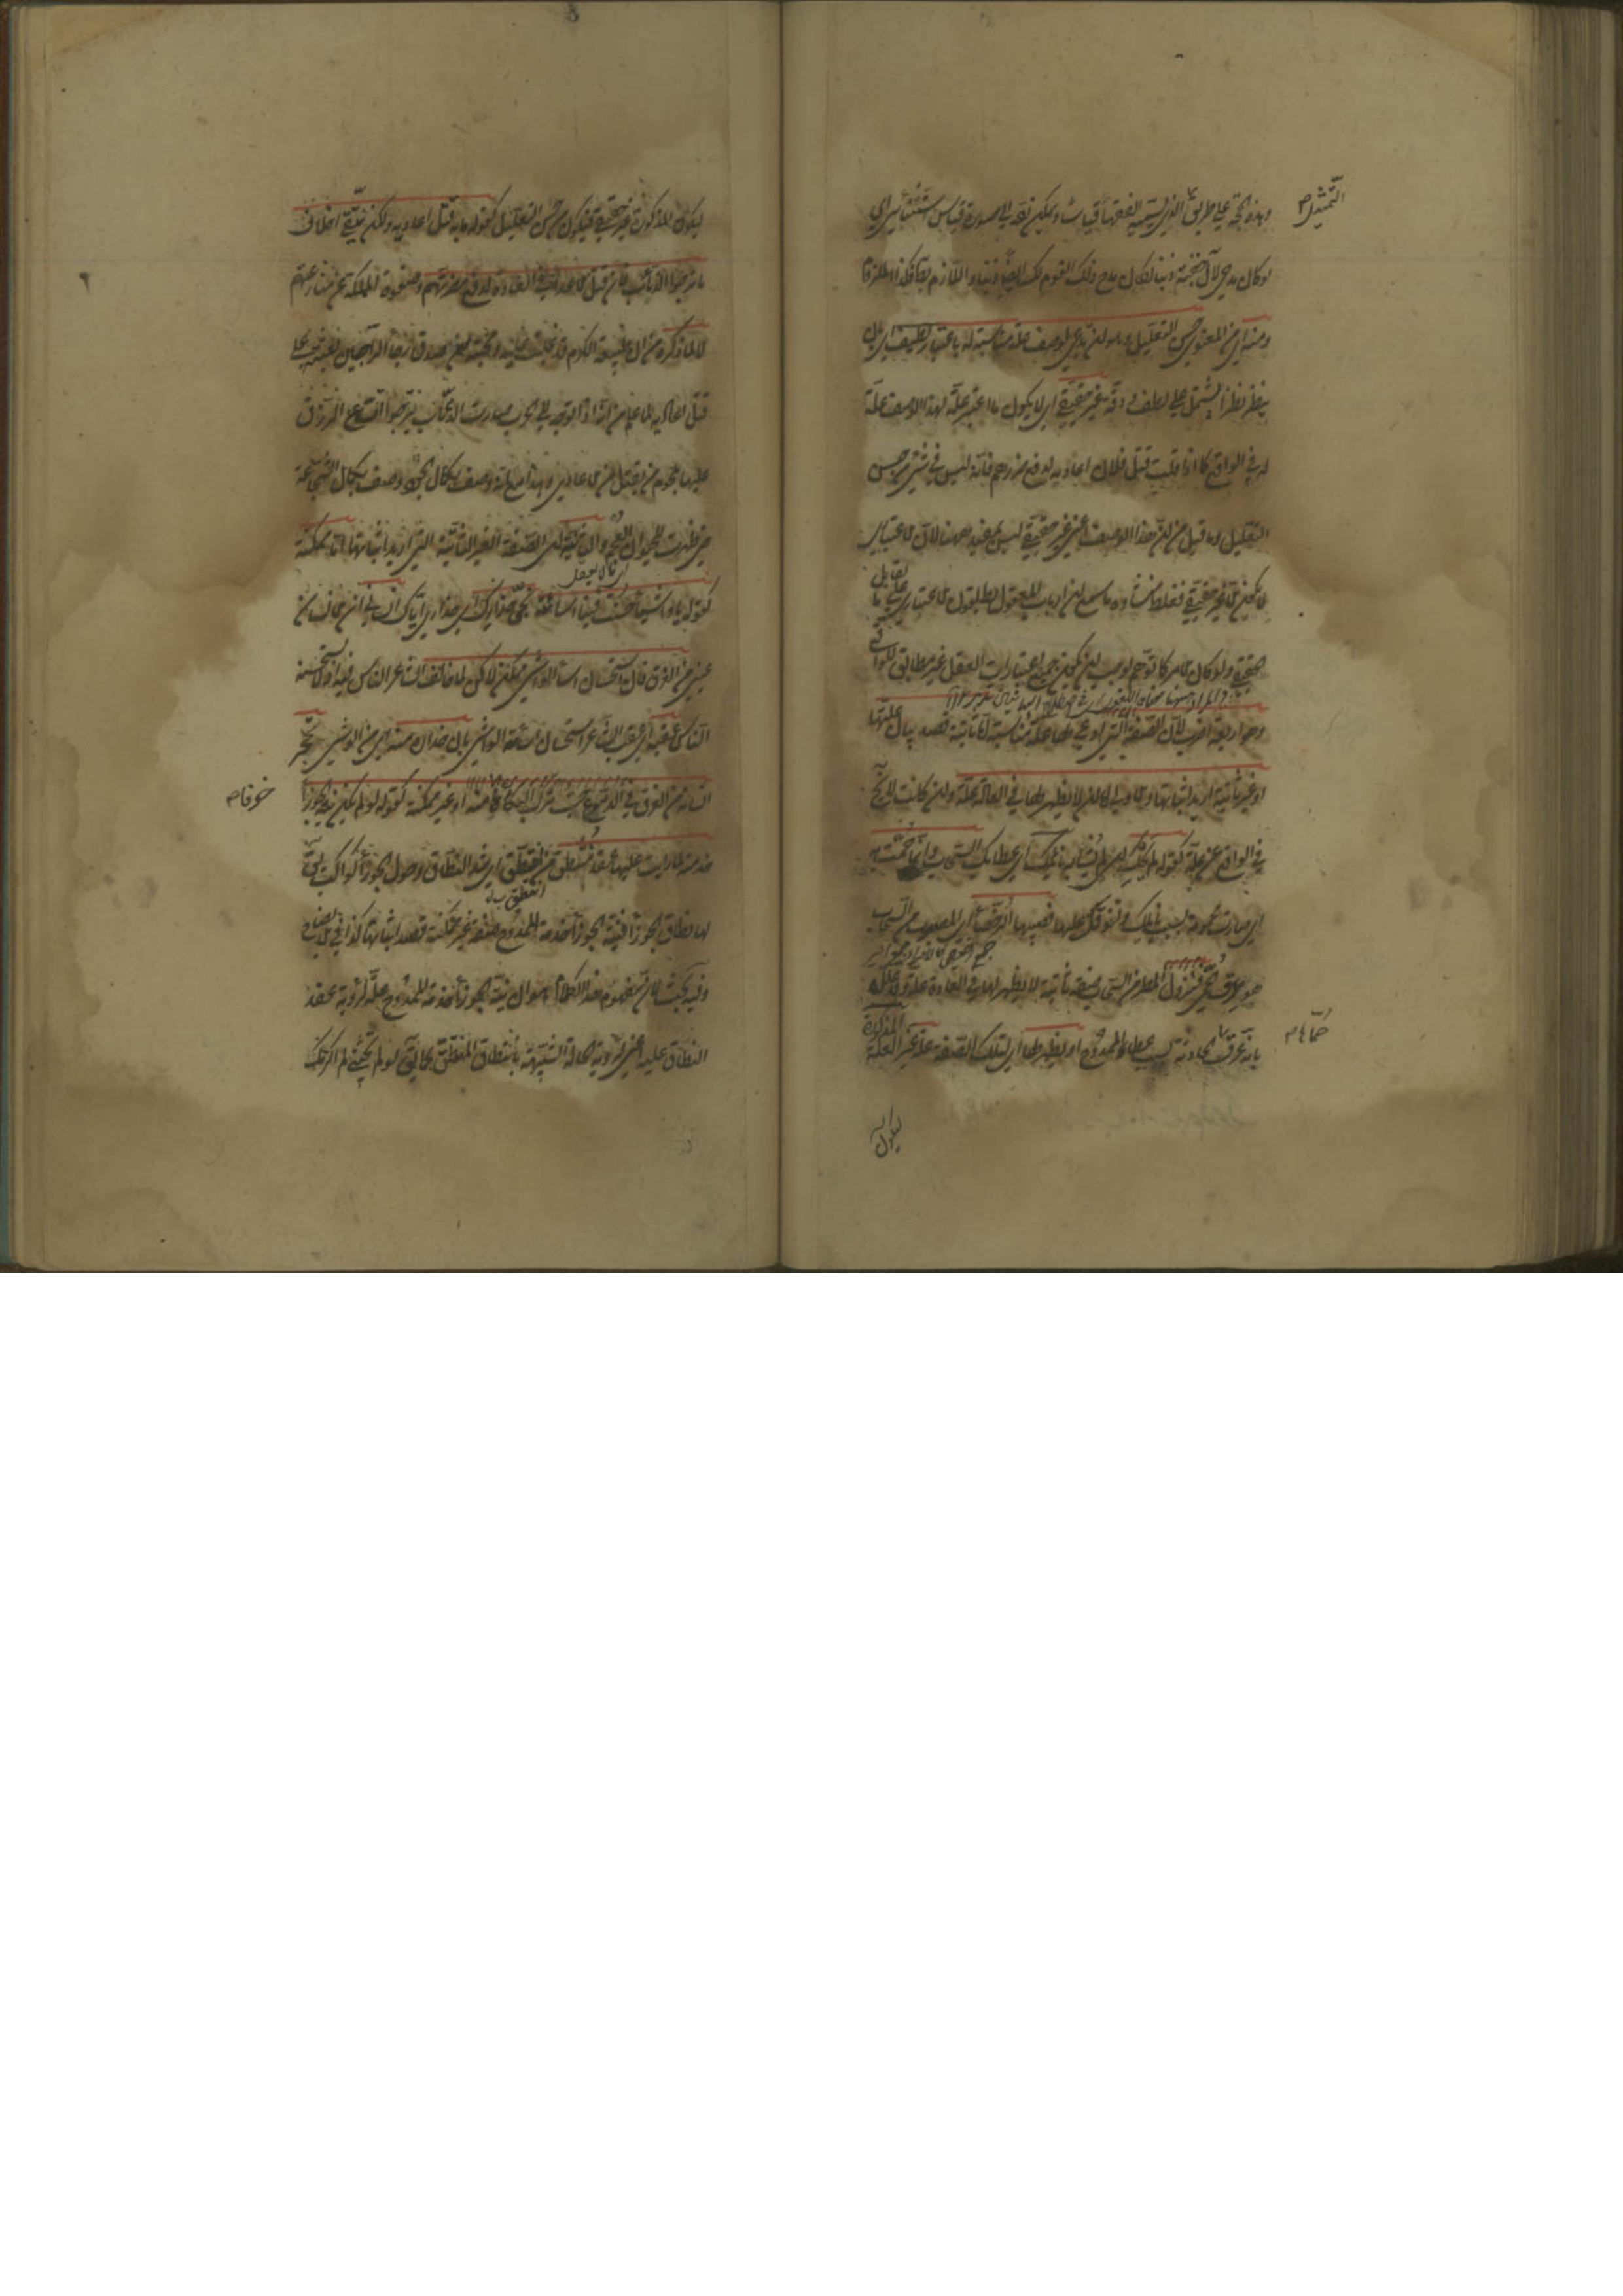 وهذه الحجة على طريق التمثيل الذي يسميه الفقهاء قياسا ويمكن رده الى صورة قياس استثنائي اي
لو كان مدحي لآل جفنة ذنبا لكان مدح ذلك القوم لك ايضا ذنبا واللازم باطل فكذا الملزوم
ومنه اي من المعنوي حسن التعليل وهو ان يدعى لوصف علة مناسبة له باعتبار لطيف اي بان
ينظر نظرا يشتمل على لطف ودقة غير حقيقي اي لا يكون ما اعتبر علة لهذا الوصف علة
له في الواقع كما اذا قلت قتل فلان اعاديه لدفع ضررهم فانه ليس في شيء من حسن
التعليل وما قيل من ان هذا الوصف اعني غير حقيقي ليس بمفيد ههنا لان الاعتبار
لا يكون الا غير حقيقي فغلط منشأوه ما سمع ان ارباب المعقول يطلقون الاعتباري على ما يقابل
الحقيقي ولو كان الامر كما توهم لوجب ان يكون جميع اعتبارات العقل غير مطابق للواقع
وهو اربعة اضرب لان الصفة التي ادعي لها علة مناسبة اما ثابتة قصد بيان علتها
او غير ثابتة اريد اثباتها والاولى اما ان لا يظهر لها في العادة علة وان كانت لا تخلو
في الواقع عن علة كقوله لم يحك اي لم يشابه نائلك اي عطاءك السحاب وانما حمت به
اي صارت محمومة بسبب نائلك وتفوقه عليها فصبيبها الرحضاء اي المصبوب من السحاب
هو عرق الحمى فنزول المطر من السحاب صفة ثابتة لا يظهر لها في العادة علة وقد علله
بانه عرق حماها الحادثة بسبب عطاء الممدوح او يظهر لها اي لتلك الصفة علة غير العلة المذكورة
ليكون
ليكون المذكورة غير حقيقي فيكون من حسن التعليل كقوله ما به قتل اعاديه ولكن يتقي اخلاف
ما ترجوا الذئاب فان قتل الاعداء في العادة لدفع مضرتهم وصفوة المملكة عن منازعتهم
لا لما ذكره من ان طبيعة الكرم قد غلبت عليه ومحبته صدق رجاء الراجين بعثته على
قتل اعاديه لما علم من انه اذا توجه الى الحرب صارت الذئاب يرجوا اتساع الرزق
عليها بلحوم من يقتل من الاعادي وهذا مع انه وصف بكمال الجود وصف بكمال الشجاعة
حتى ظهرت للحيوان العجم والثانية اي الصفة الغير الثابتة التي اريد اثباتها اما ممكنة
كقوله يا واشيا حسنت فينا اساءته نجى حذارك اي حذاري اياك انساني اي انسان
عيني من الغرق فان استحسان اساءة الواشي ممكن لكن لما خالف الشاعر الناس فيه اذ لا يستحسنه
الناس عقبه اي عقب الشاعر استحسان اساءة الواشي بان حذاره منه اي من الواشي نجى
انسانه من الغرق في الدموع حيث ترك البكاء خوفا منه او غير ممكنة كقوله لو لم يكن نية الجوزاء
خدمته لما رايت عليها عقد منتطق من انتطق اي شد النطاق وحول الجوزاء كواكب يقال
لها نطاق الجوزاء فنية الجوزاء خدمة الممدوح صفة غير ممكنة قصد اثباتها كذا في الايضاح
وفيه بحث لان مفهوم هذا الكلام هو ان نية الجوزاء خدمة الممدوح علة لرؤية عقد
النطاق عليه اعني لرؤية حالة شبيهة بانتطاق المنتطق كما يقال لو لم تجئني لم اكرمك